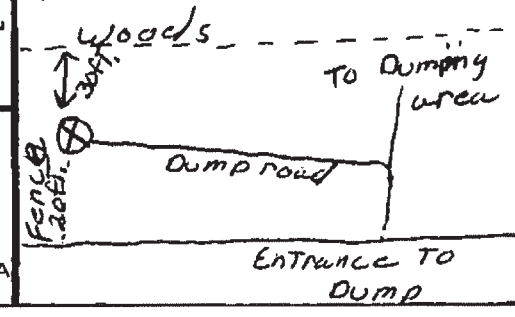 Woods
30ft.
To Dumping
area
Dump road
Fence
20ft.
Entrance To
Dump